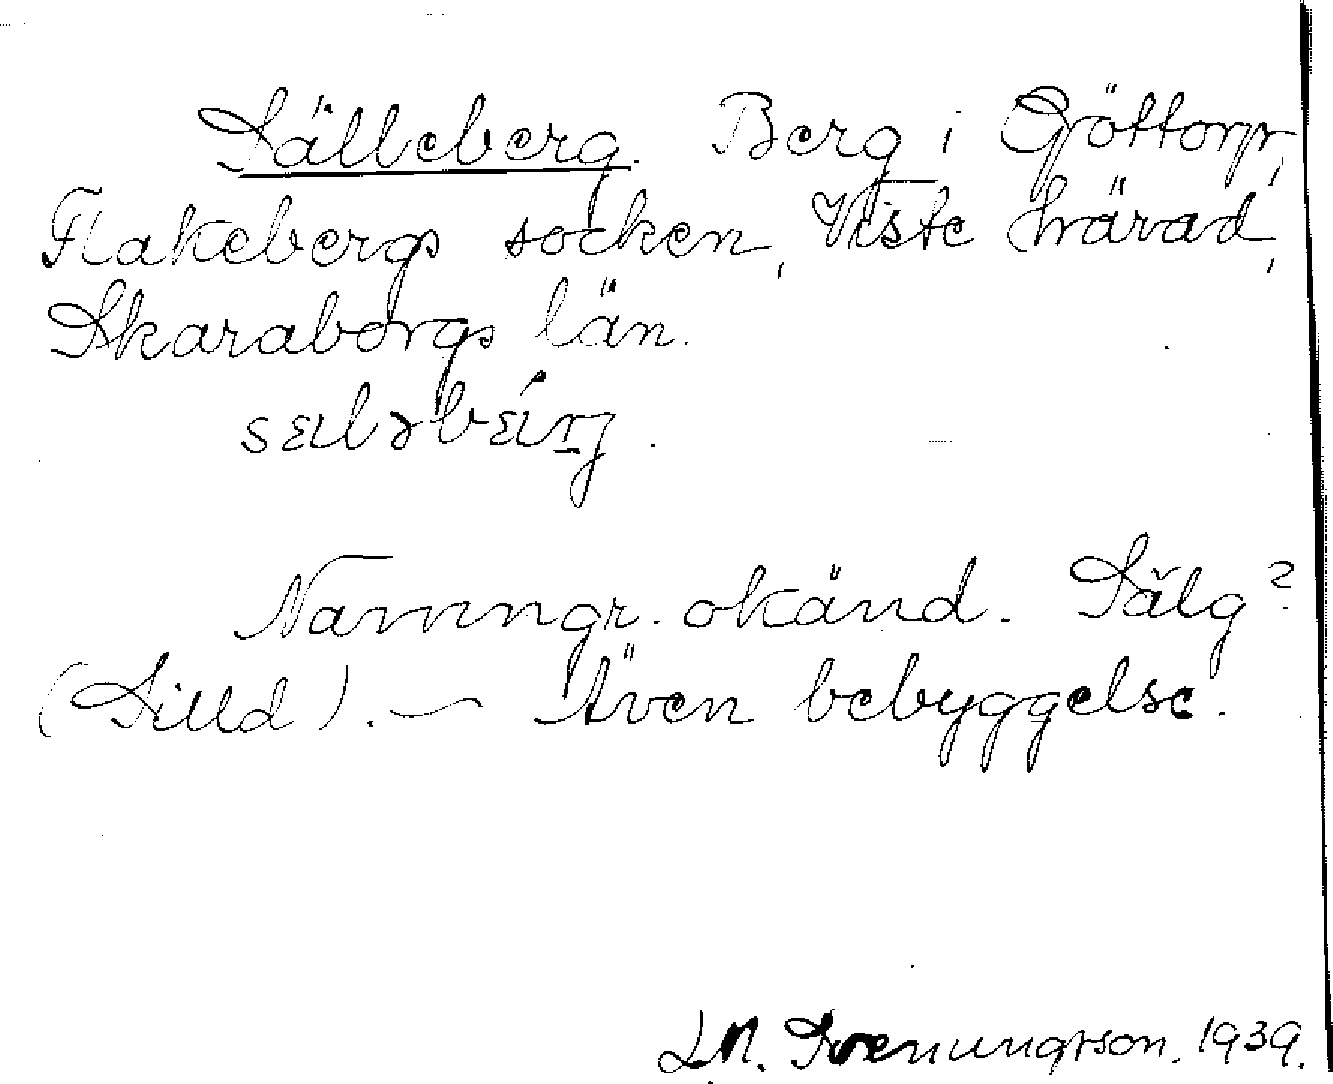 Sälleberg. Berg i Göttorp,
Flakebergs socken, Viste härad,
Skaraborgs län.
Namngr. okänd. Sälg?
(Silld). — Även bebyggelse.
L.M. Svenungsson. 1939.